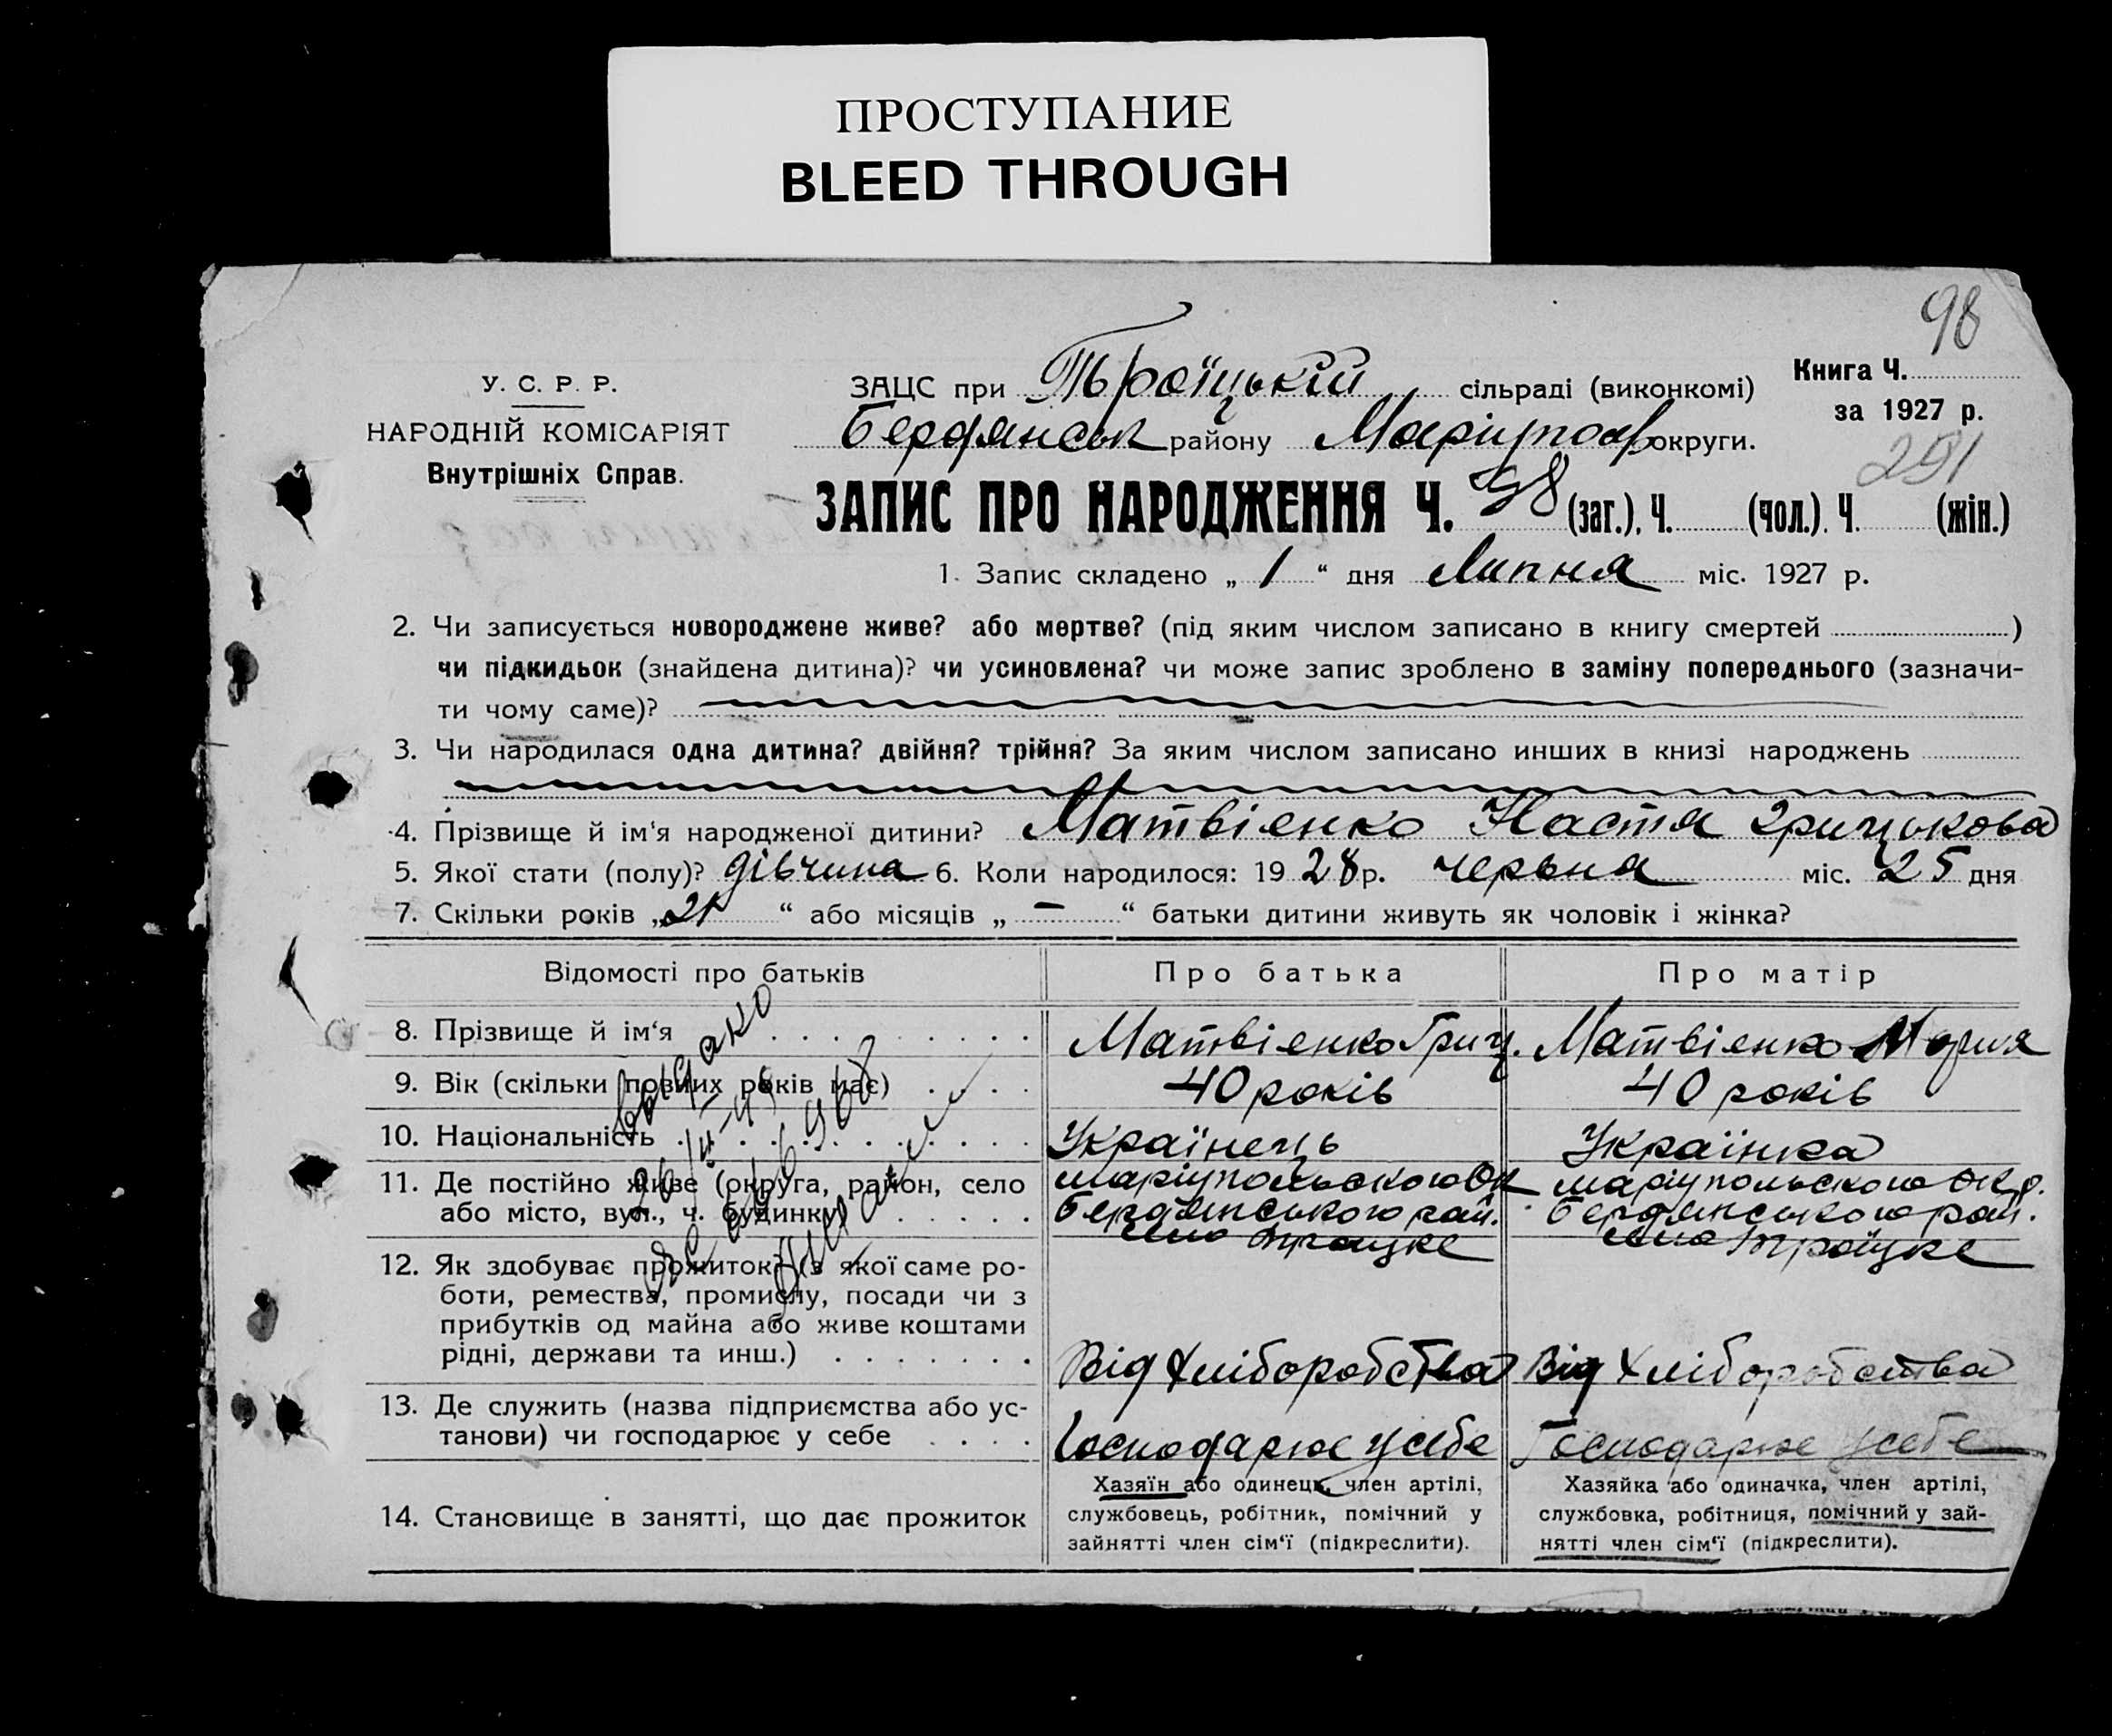 ПРОСТУПАНИЕ
BLEED THROUGH
98
У. С. Р. Р.
НАРОДНІЙ КОМІСАРІЯТ
Внутрішніх Справ.
ЗАЦС при Тьроїцькій сільраді (виконкомі)
Бердянськ району Маріупол округи.
Книга Ч.
за 1927 р.
291
ЗАПИС ПРО НАРОДЖЕННЯ Ч. 98 (заг.), Ч. (чол.). Ч. (жін.)
1. Запис складено „ 1 “ дня Липня міс. 1927 р.
2. Чи записується новороджене живе? або мертве? (під яким числом записано в книгу смертей )
чи підкидьок (знайдена дитина)? чи усиновлена? чи може запис зроблено в заміну попереднього (зазначи-
ти чому саме)?
3. Чи народилася одна дитина? двійня? трійня? За яким числом записано инших в книзі народжень
4. Прізвище й ім‘я народженої дитини? Матвієнко Настя Грицькова
5. Якої стати (полу)? дівчина 6. Коли народилося: 1928 р. червня міс. 25 дня
7. Скільки років „21 “ або місяців „ — “ батьки дитини живуть як чоловік і жінка?
Відомості про батьків
Про батька
Про матір
8. Прізвище й ім‘я
Матвієнко Гриц.
Матвієнко Мария
9. Вік (скільки повних років має)
40 років
40 років
10. Національність
Українець
Українка
11. Де постійно живе (округа, район, село
або місто, вул., ч. будинку)
Маріупольского Ок
Бердянського рай.
село Троцке
Маріупольского Окр.
Бердянського рай.
село Троїцке
12. Як здобуває прожиток? (з якої саме ро-
боти, ремества, промислу, посади чи з
прибутків од майна або живе коштами
рідні, держави та инш.)
Від Хліборобства
Від Хліборобства
13. Де служить (назва підприємства або ус-
танови) чи господарює у себе
Господарює у себе
Господарює у себе
14. Становище в занятті, що дає прожиток
Хазяїн або одинець, член артілі,
службовець, робітник, помічний у
зайнятті член сім‘ї (підкреслити).
Хазяйка або одиначка, член артілі,
службовка, робітниця, помічний у зай-
нятті член сім‘ї (підкреслити).
выдано